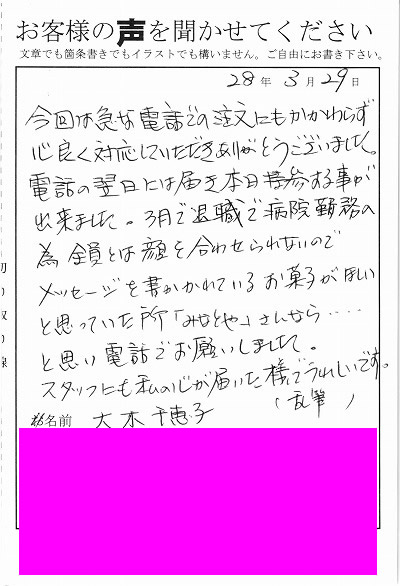 お客様の声を聞かせてください
文章でも箇条書きでもイラストでも構いません。ご自由にお書き下さい。
28年 3月29日
今回は急な電話での注文にもかかわらず
心良く対応していただきありがとうございました。
電話の翌日には届き本日持参する事が
出来ました。3月で退職で病院勤務の
為全員とは顔を合わせられないので
メッセージを書かれているお菓子がほしい
と思っていた所「みなとや」さんなら・・・・
と思い電話でお願いしました。
スタッフにも私の心が届いた様でうれしいです。
(乱筆)
お名前 大木千恵子
切り取り線